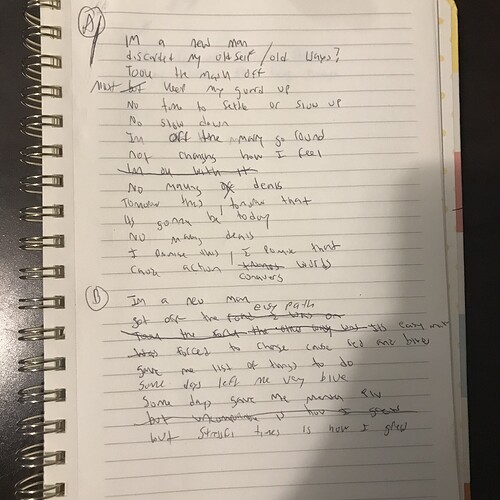 A
Im a new man
discarded my old self / old ways?
Took the mask off
Must but keep my guard up
No time to settle or slow up
No slow down
Im off the merry go round
not changing how I feel
Im ok with it
No making deals
Tomorrow this, tomorrow that
Its gonna be today
No making deals
I promise this, I promise that
cause action words
conquers
B
Im a new man
easy path
got off the
Took the fork the other way but
was forced to chose cause red and blue
gave me list of things to do
Some days left me very blue
Some days gave me
but is how I
but stressful times is how I grew